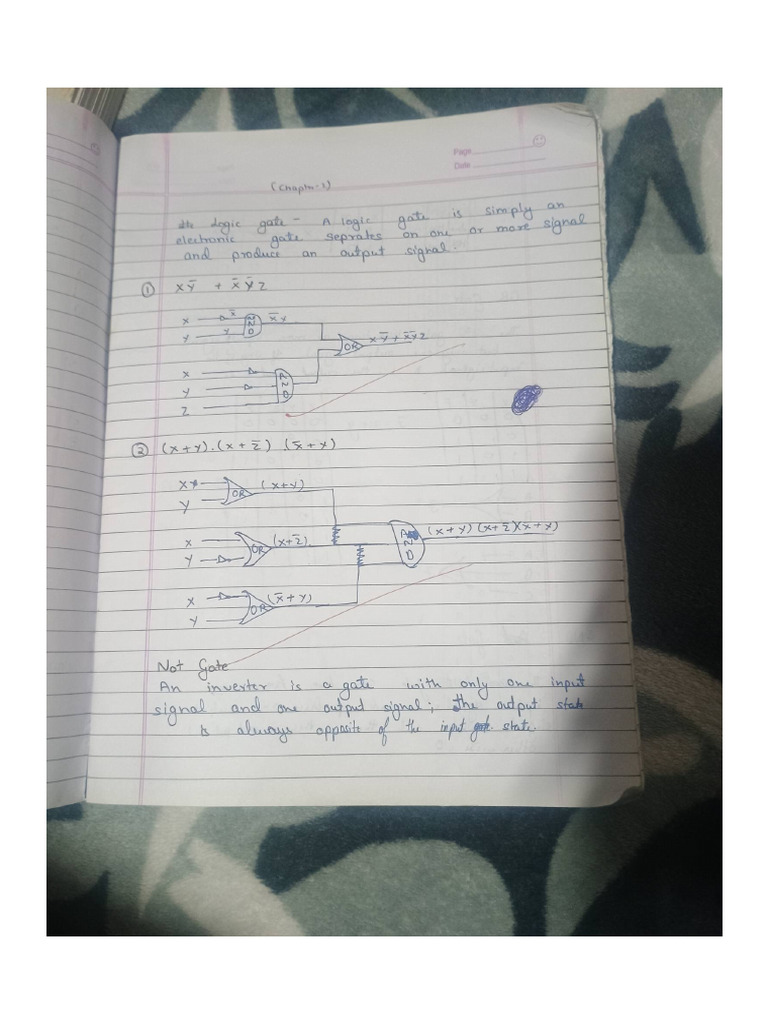 Page
Date
(Chaptr-1)
Logic gate - A logic gate is simply an
electronic gate seprates on one or more signal
and produce an output signal.
① XY̅ + X̅Y̅Z
X X̅ AND X̅Y
Y Y
OR XY̅+X̅Y̅Z
X AND
Y
Z
② (X+Y).(X+Z̅).(X̅+Y)
X OR (X+Y)
Y
X OR (X+Z̅) AND (X+Y)(X+Z̅)(X+Y)
Y
X OR (X̅+Y)
Y
Not Gate
An inverter is a gate with only one input
signal and one output signal; the output state
is always opposite of the input state.